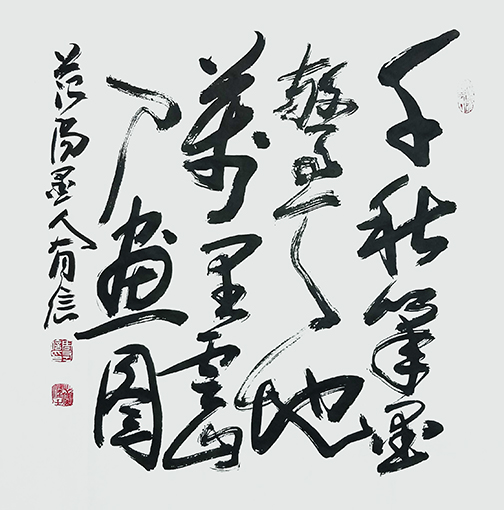 千秋笔墨
惊天地
萬里雲山
入画图
范阳墨人有信